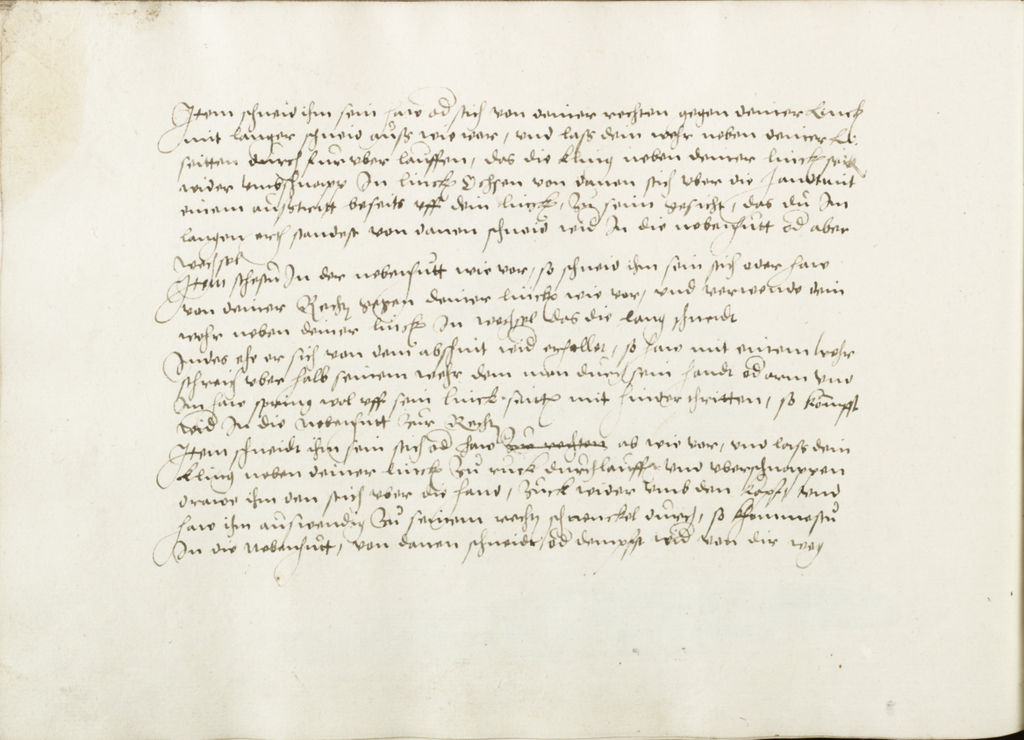 Item schneid ihm sein haw od stich von deiner rechten gegen deiner Linck
mit langer schneid auss wie vor, und lass dein wehr neben deiner Li:
seitten durch fur uber lauffen, das die kling neben deiner linck seit
wider umbschnapp In linck Ochsen von danen stich uber die handt mit
einem ausstritt beseits uff dein linck, Zu seim gesicht, das du Im
langen ort standest von danen schneid wid In die nebenhutt od aber
wechsel
Item stehstu In der nebenhutt wie vor, so schneid ihm sein stich oder haw
von deiner Recht gegen deiner linck wie vor, und verwende dein
wehr neben deiner linck In wechsel das die lang schneidt
Indes ehe er sich von dem abschnit wid erhollet, so haw mit einem
schreich uber halb seinem wehr dem man durch sein handt od arm und
Im haw spring wol uff sein linck seitt mit hinderschritten, so kompst
wid In die Nebenhutt Zur Recht
Item schneidt ihm sein stich od haw Zur rechten ab wie vor, und lass dein
kling neben deiner linck Zu ruck durchlauff und uberschnappen
drawe ihm den stich uber die hand, Zuck wider umb den kopff und
haw ihm auswendig Zu seinem recht schenckel durch, so kommestu
In die Nebenhutt, von danen schneidt od dempff wid von dir weg